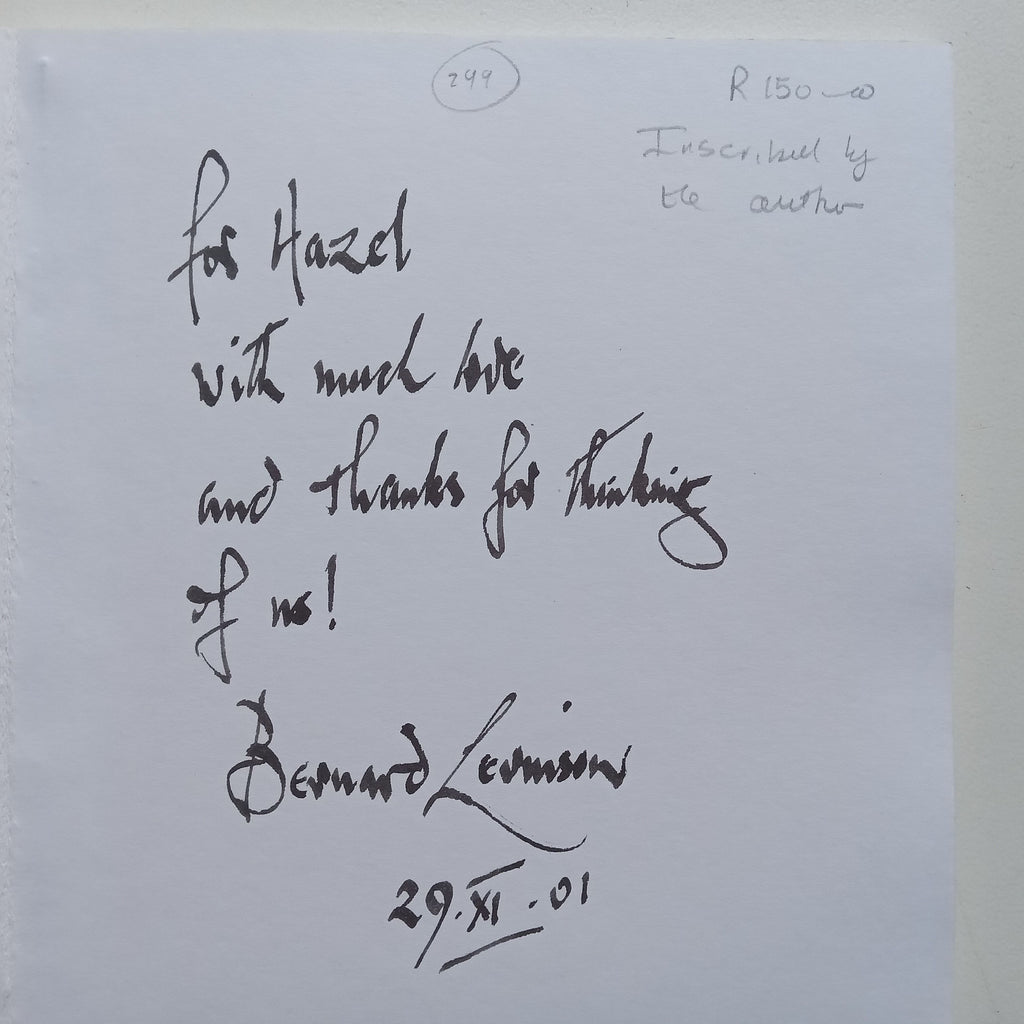 299
R 150-00
Inscribed by
the author
for Hazel
with much love
and thanks for thinking
of us!
Bernard Levinson
29.XI.01